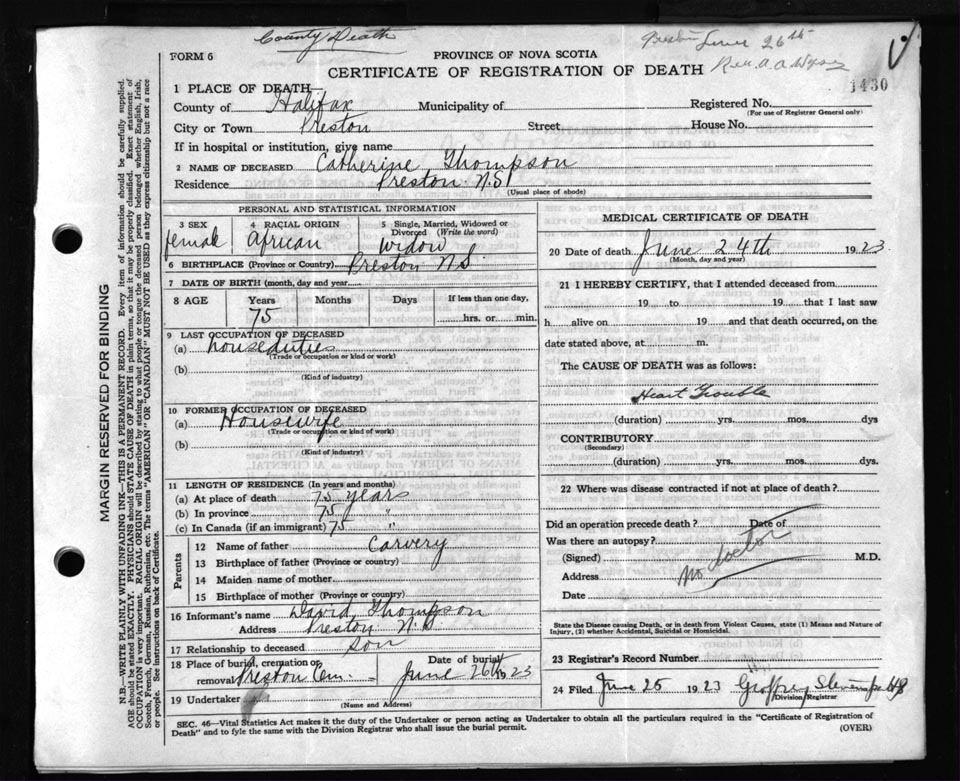 County Death
Preston June 26th
Rev. A. A. Wyse
FORM 6
PROVINCE OF NOVA SCOTIA
CERTIFICATE OF REGISTRATION OF DEATH
1430
1 PLACE OF DEATH
County of Halifax Municipality of Registered No.
(For use of Registrar General only)
City or Town Preston Street House No.
If in hospital or institution, give name
2 NAME OF DECEASED Catherine Thompson
Residence Preston N.S
(Usual place of abode)
PERSONAL AND STATISTICAL INFORMATION
3 SEX 4 RACIAL ORIGIN 5 Single, Married, Widowed or Divorced (Write the word)
female African Widow
6 BIRTHPLACE (Province or Country) Preston N.S.
7 DATE OF BIRTH (month, day and year
8 AGE Years Months Days If less than one day,
75 hrs. or min.
9 LAST OCCUPATION OF DECEASED
(a) houseduties
(Trade or occupation or kind or work)
(b)
(Kind of industry)
10 FORMER OCCUPATION OF DECEASED
(a) Housewife
(Trade or occupation or kind of work)
(b)
(Kind of industry)
11 LENGTH OF RESIDENCE (In years and months)
(a) At place of death 75 years
(b) In province 75 "
(c) In Canada (if an immigrant) 75 "
Parents
12 Name of father Carvery
13 Birthplace of father (Province or country)
14 Maiden name of mother
15 Birthplace of mother (Province or country)
16 Informant's name David Thompson
Address Preston N.S
17 Relationship to deceased son
18 Place of burial, cremation or removal Preston Cem. Date of burial June 26th 1923
19 Undertaker
(Name and Address)
MEDICAL CERTIFICATE OF DEATH
20 Date of death June 24th 1923
(Month, day and year)
21 I HEREBY CERTIFY, that I attended deceased from
19 to 19 that I last saw
h alive on 19 and that death occurred, on
date stated above, at m.
The CAUSE OF DEATH was as follows:
Heart Trouble
(duration) yrs. mos. dys
CONTRIBUTORY
(Secondary)
(duration) yrs. mos. dys.
22 Where was disease contracted if not at place of death?
Did an operation precede death? Date of
Was there an autopsy?
(Signed) M.D.
No doctor
Address
Date
State the Disease causing Death, or in death from Violent Causes, state (1) Means and Nature of
Injury, (2) whether Accidental, Suicidal or Homicidal.
23 Registrar's Record Number
24 Filed June 25 1923 Geoffrey
Division Registrar
SEC. 46—Vital Statistics Act makes it the duty of the Undertaker or person acting as Undertaker to obtain all the particulars required in the "Certificate of Registration of
Death" and to fyle the same with the Division Registrar who shall issue the burial permit.
(OVER)
MARGIN RESERVED FOR BINDING
N.B.—WRITE PLAINLY WITH UNFADING INK—THIS IS A PERMANENT RECORD. Every item of information should be carefully supplied.
AGE should be stated EXACTLY. PHYSICIANS should STATE CAUSE OF DEATH in plain terms, so that it may be properly classified. Exact statement of
OCCUPATION is very important. RACIAL ORIGIN will be described by stating to what people or tongue the deceased person belonged whether English, Irish,
Scotch, French, German, Russian, Ruthenian, etc. The terms "AMERICAN" OR "CANADIAN" MUST NOT BE USED as they express citizenship but not a race
or people. See instructions on back of Certificate.